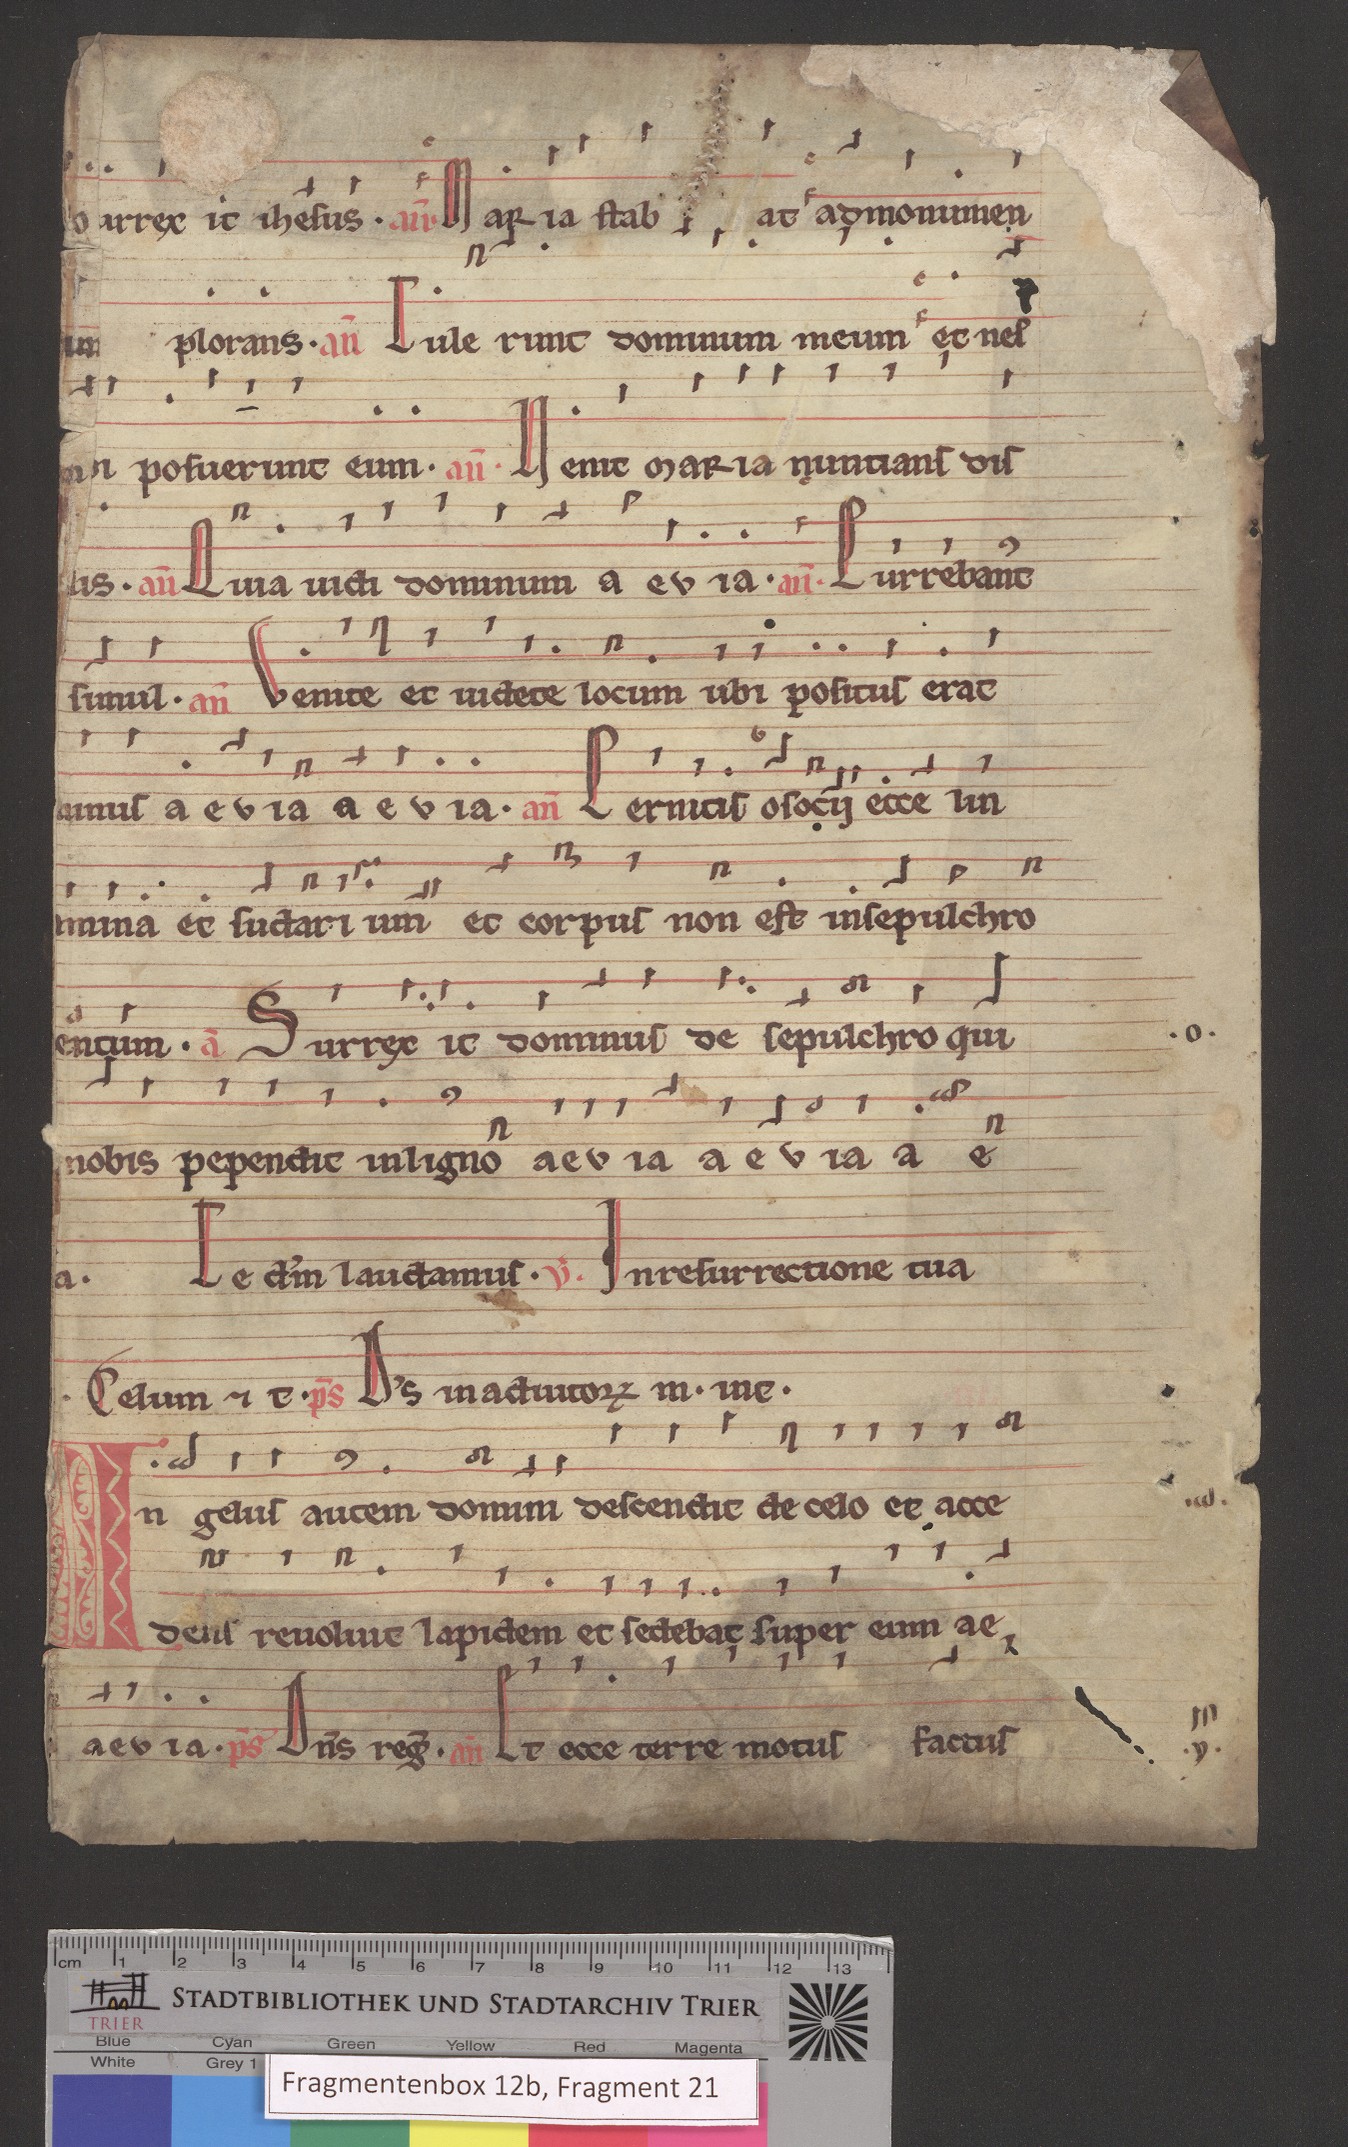 urrex it ihesus . an̄ Maria stab at ad monumen
um plorans . an̄ Tule runt dominum meum et nes
posuerunt eum . an̄ . Venit maria nuntians dis
lis . an̄ Quia uidi dominum a ev ia . an̄ . Currebant
simul . an̄ Venite et uidete locum ubi positus erat
minus a e v ia a e v ia . an̄ Cernitis o socij ecce lin
mina et sudari um et corpus non est in sepulchro
entum . ā Surrex it dominus de sepulchro qui
.o.
nobis pependit in ligno aev ia a e v ia a e
a . Te dm̄ laudamus . v̄ . In resurrectione tua
. Celum ⁊ t . ps̄ Ds in adiutorꝝ m . int .
An gelus autem domini descendit de celo et acce
.a.
dens reuoluit lapidem et sedebat super eum ae
aev ia . ps̄ Dn̄s reḡ . an̄ Et ecce terre motus factus
m
.y.
cm 1 2 3 4 5 6 7 8 9 10 11 12 13
TRIER
STADTBIBLIOTHEK UND STADTARCHIV TRIER
Blue Cyan Green Yellow Red Magenta
White Grey 1
Fragmentenbox 12b, Fragment 21